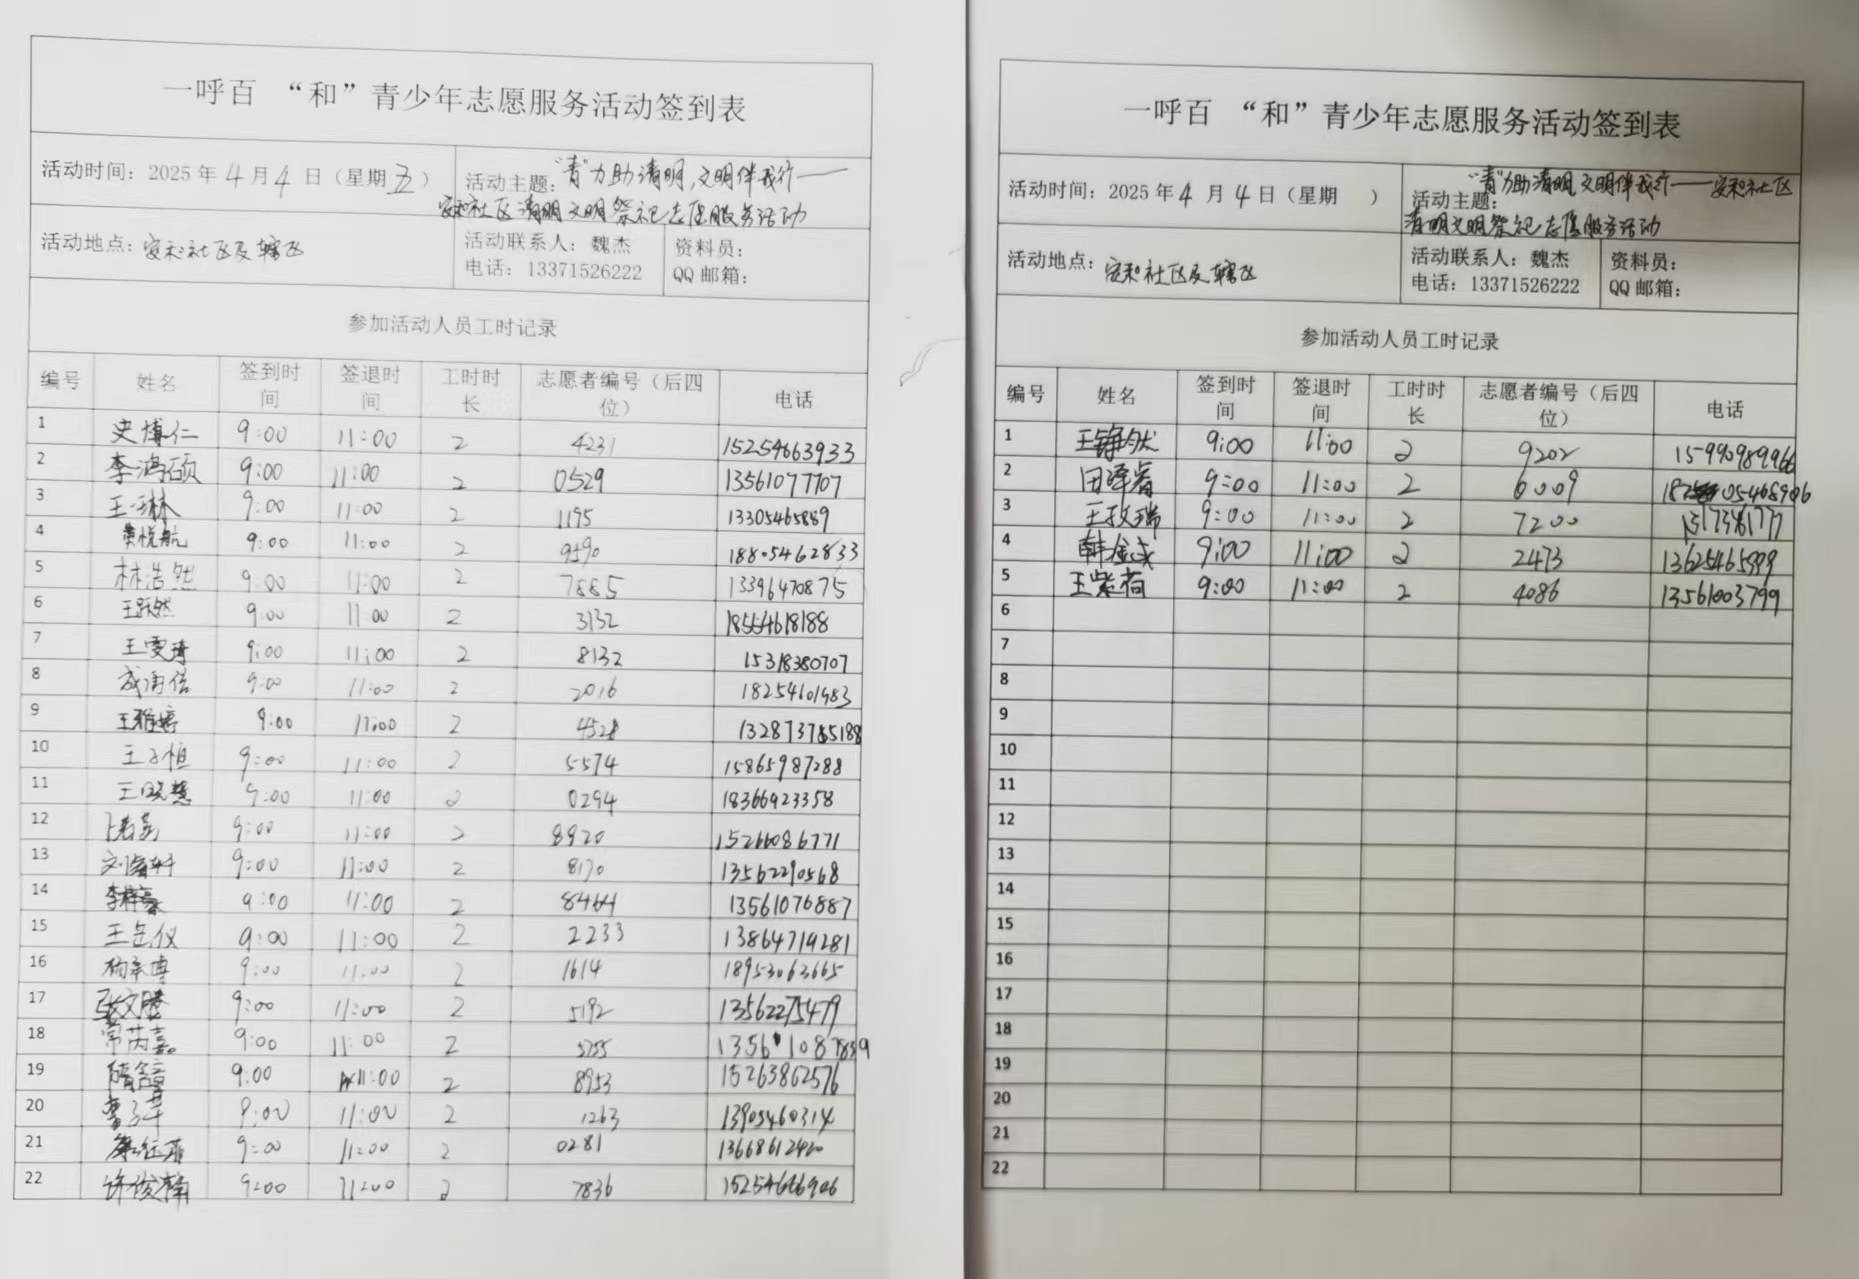 一呼百 “和”青少年志愿服务活动签到表
活动时间：2025年4月4日（星期五）
活动主题：“青”力助清明，文明伴我行——
安和社区清明文明祭祀志愿服务活动
活动地点：安和社区及辖区
活动联系人：魏杰
电话：13371526222
资料员：
QQ邮箱：
参加活动人员工时记录
编号 姓名 签到时间 签退时间 工时时长 志愿者编号（后四位） 电话
1 史博仁 9:00 11:00 2 4231 15254663933
2 李鸿硕 9:00 11:00 2 0529 13561077707
3 王一琳 9:00 11:00 2 1195 13305465889
4 黄悦航 9:00 11:00 2 9590 18805462833
5 林浩然 9:00 11:00 2 7885 13396470875
6 王跃然 9:00 11:00 2 3132 18554618188
7 王雯琦 9:00 11:00 2 8132 15318380707
8 9:00 11:00 2 2016 18254601983
9 王雅婷 9:00 11:00 2 4528
10 王子恒 9:00 11:00 2 5574 15865987288
11 王晓慧 9:00 11:00 2 0294 18366923358
12 9:00 11:00 2 8920 15266086771
13 9:00 11:00 2 8170 13562290568
14 李梓豪 9:00 11:00 2 8464 13561076887
15 9:00 11:00 2 2233 13864719281
16 9:00 11:00 2 1614 18953063665
17 张文腾 9:00 11:00 2 5192 13562275479
18 常芮嘉 9:00 11:00 2 5755 13561087859
19 9:00 11:00 2 8953 15263862576
20 9:00 11:00 2 1263 13905460314
21 9:00 11:00 2 0281 13668612420
22 许俊楠 9:00 11:00 2 7836 15254666906
一呼百 “和”青少年志愿服务活动签到表
活动时间：2025年4月4日（星期 ）
活动主题：“青”力助清明，文明伴我行——安和社区
清明文明祭祀志愿服务活动
活动地点：安和社区及辖区
活动联系人：魏杰
电话：13371526222
资料员：
QQ邮箱：
参加活动人员工时记录
编号 姓名 签到时间 签退时间 工时时长 志愿者编号（后四位） 电话
1 9:00 11:00 2 9202 15990989966
2 田泽睿 9:00 11:00 2 6009
3 王玫瑞 9:00 11:00 2 7200
4 韩金成 9:00 11:00 2 2473 13625465999
5 王紫荷 9:00 11:00 2 4086 13561003799
6
7
8
9
10
11
12
13
14
15
16
17
18
19
20
21
22